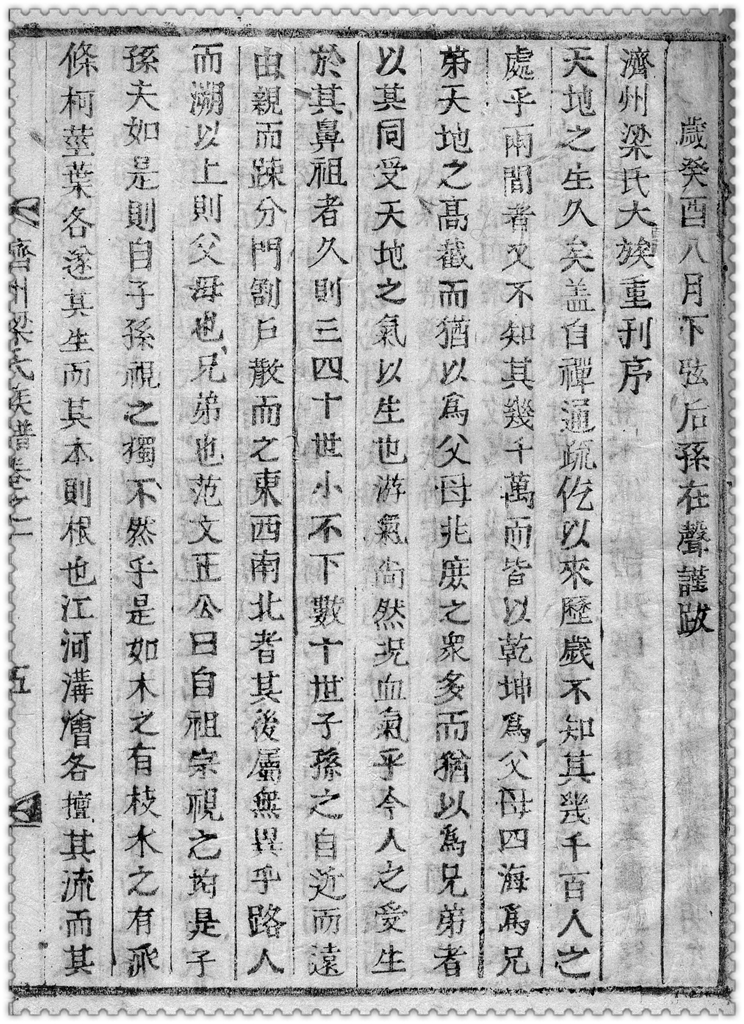 歲癸酉八月下弦后孫在聲謹跋
濟州梁氏大族重刊序
天地之生久矣盖自禪通疏仡以來歷歲不知其幾千百人之
處乎兩間者又不知其幾千萬而皆以乾坤爲父母四海爲兄
弟天地之高截而猶以爲父母兆庶之衆多而猶以爲兄弟者
以其同受天地之氣以生也游氣尙然況血氣乎今人之受生
於其鼻祖者久則三四十世小不下數十世子孫之自近而遠
由親而踈分門割戶散而之東西南北者其後屬無異乎路人
而溯以上則父母也兄弟也范文正公曰自祖宗視之均是子
孫夫如是則自子孫視之獨不然乎是如木之有枝水之有派
條柯莖葉各遂其生而其本則根也江河溝澮各擅其流而其
濟州梁氏族譜卷之一
五